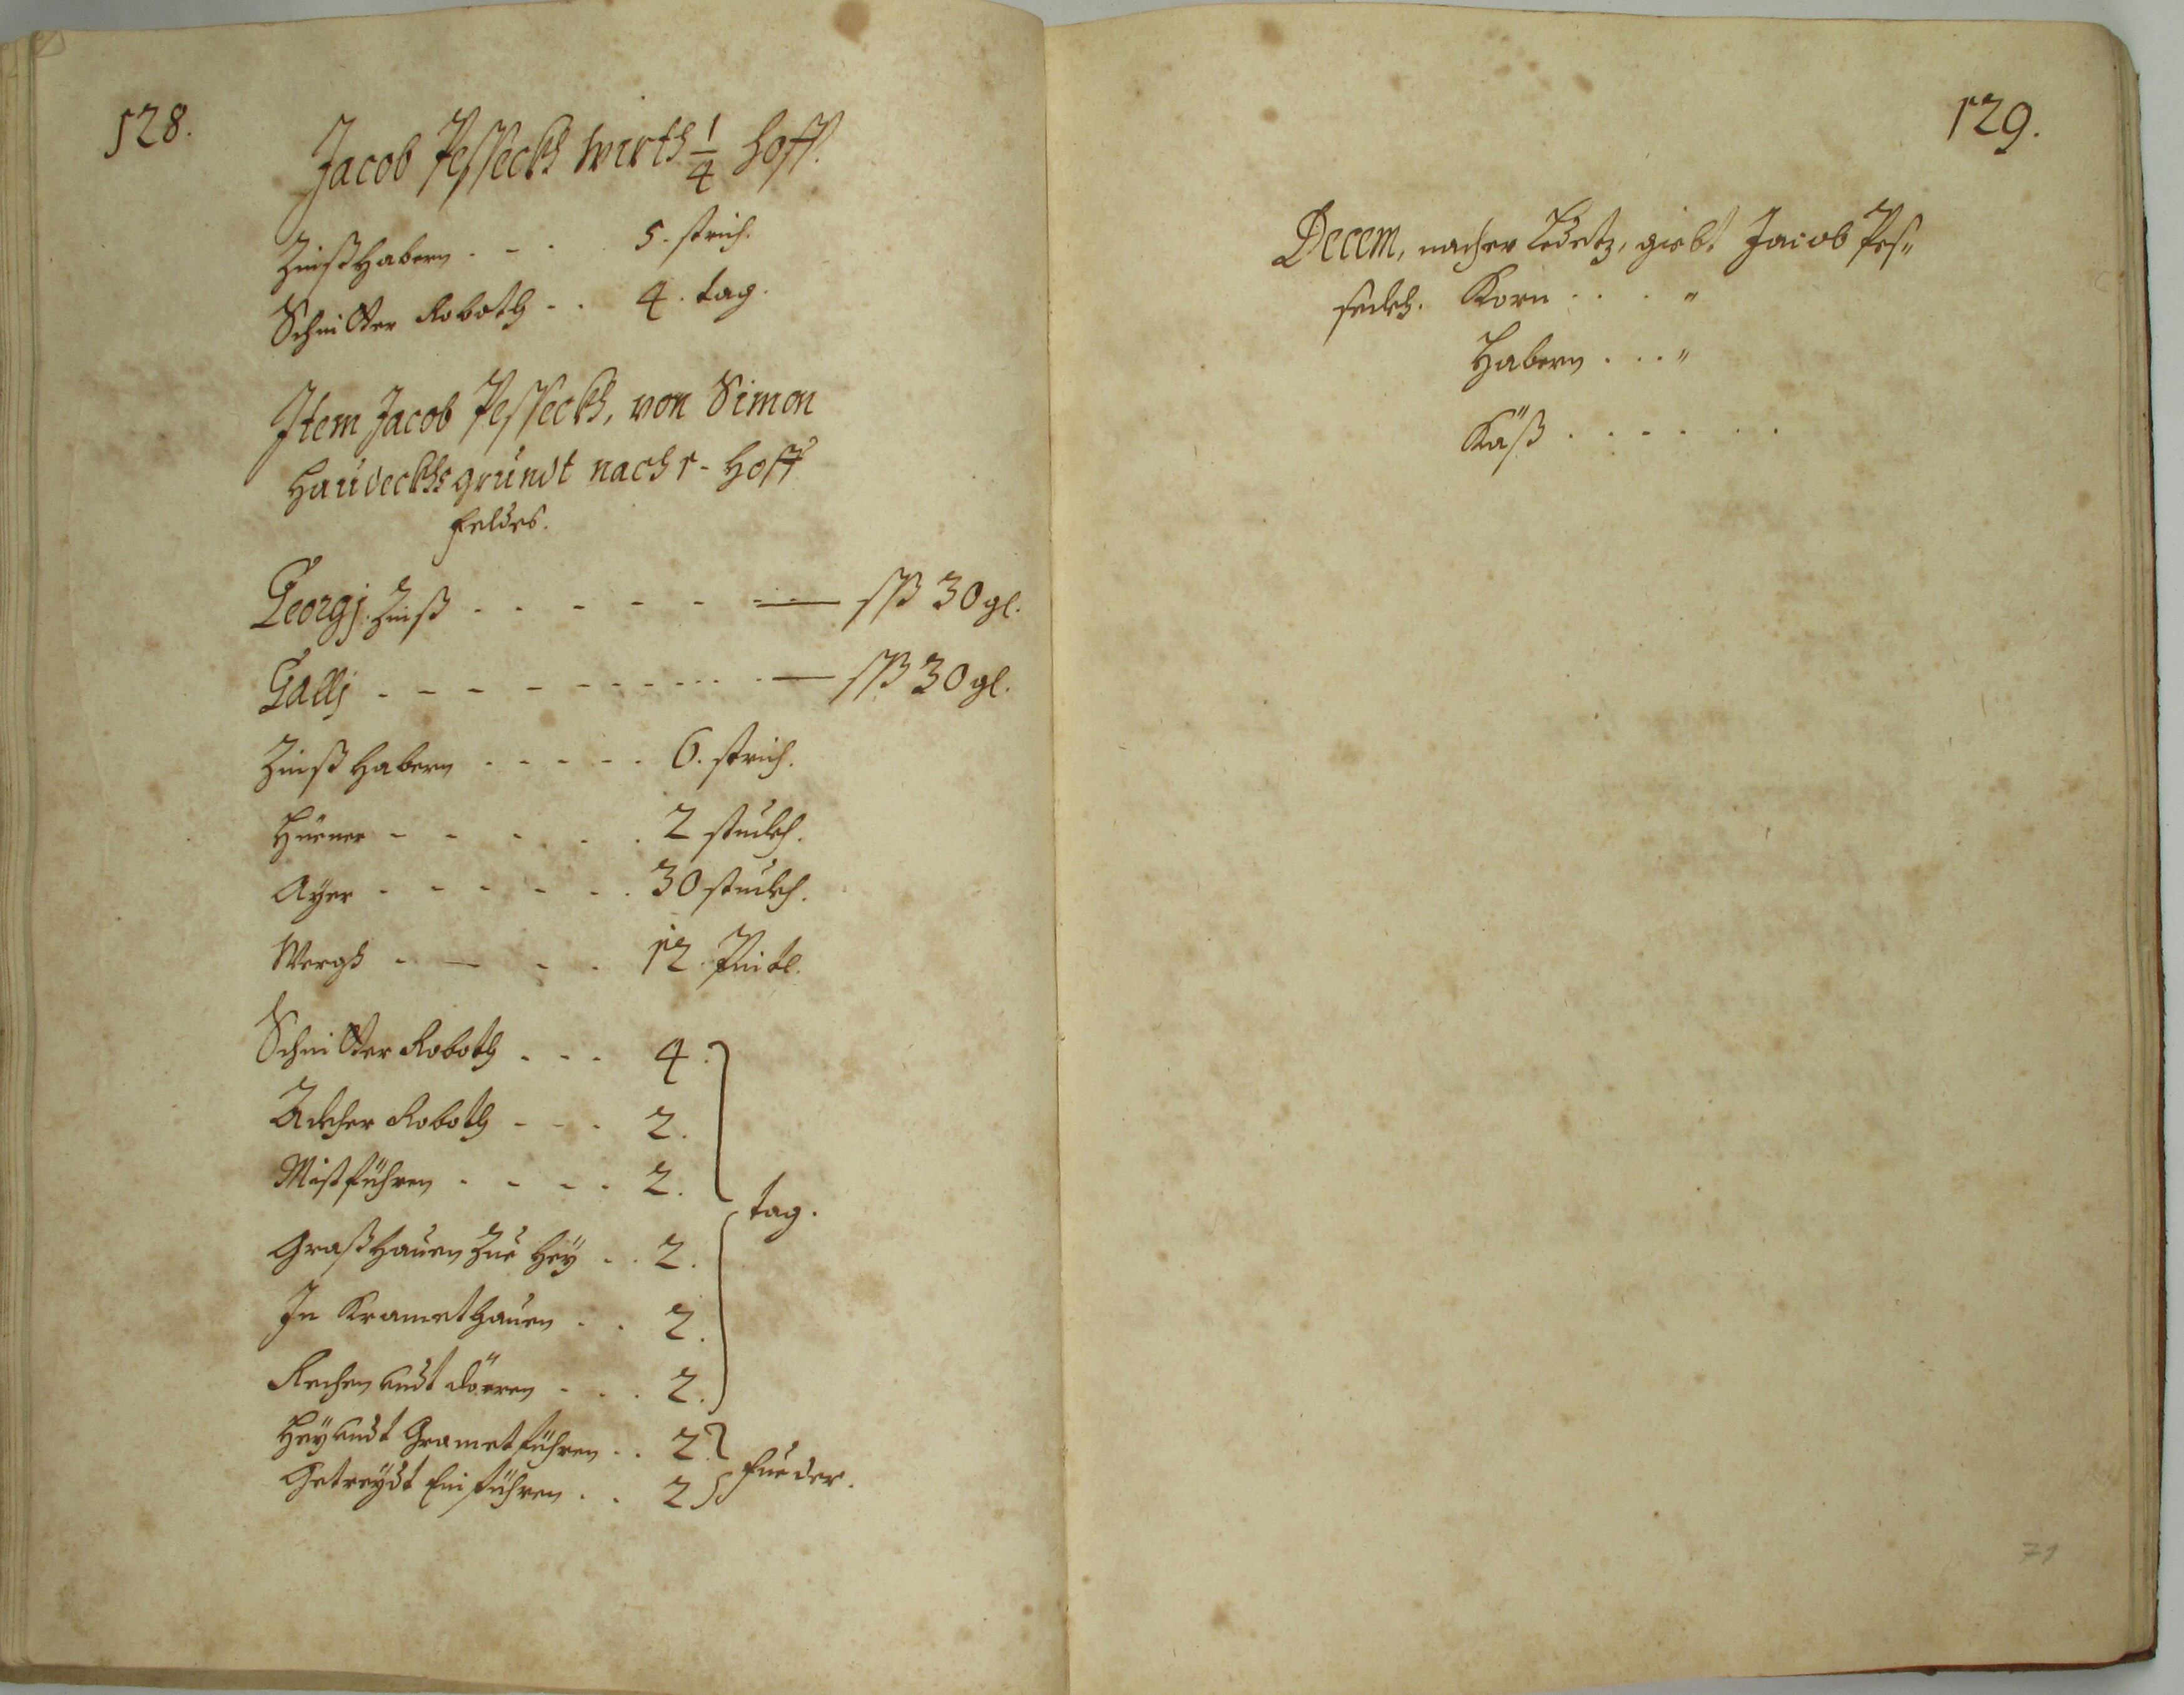 128.
Jacob Pesseckh Wirth 1/4 Hoff.
Zinß Habern . - . 5. strich.
Schnitter Roboth - . 4. tag.
Item Jacob Pesseckh, von Simon
Haudeckhs grundt nach 1 - Hoff
Feldes.
Georgj Zinß - - - - - - — ßß 30 gl.
Gallj - - - - - - - - - — ßß 30 gl.
Zinß Habern - - - - - 6. strich.
Hüener - - - - - 2 stuckh.
Ayer - - - - - - 30 stuckh.
Wergh - — - - 12. Puitl.
Schnitter Roboth - - - 4.
Ackher Roboth - - - 2.
Mistführen - - - - 2.
tag.
Graßhauen Zue Hey - - 2.
In Kramethauen - - 2.
Rechen undt dörren - - - 2.
Hey undt Grametführen - - 2.
Fueder.
Getreydt Einführen - - 2
129.
Decem, nacher, giebt Jacob Pes„
seckh. Korn . . . "
Habern . . . "
Käß . . . . . .
71